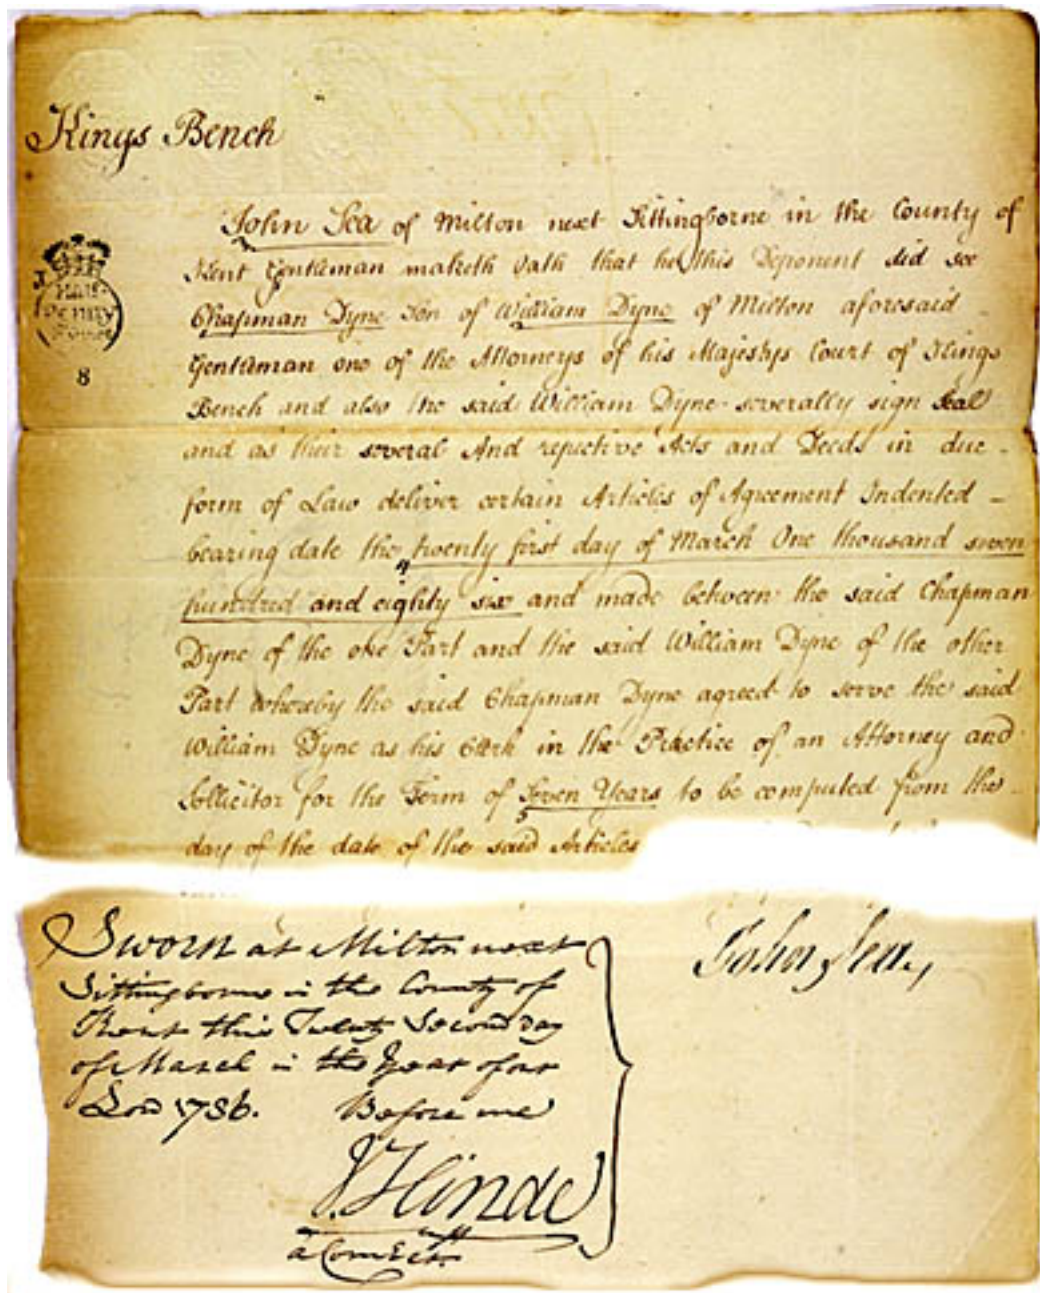 Kings Bench
John Sea of Milton next Sittingborne in the County of
Kent Gentleman maketh Oath that he this Deponent did see
Chapman Dyne Son of William Dyne of Milton aforesaid
Gentleman one of the Attorneys of his Majestys Court of Kings
Bench and also the said William Dyne severally sign Seal
and as their several And repective Acts and Deeds in due -
form of Law deliver certain Articles of Agreement Indented -
bearing date the twenty first day of March One thousand seven
hundred and eighty six and made between the said Chapman
Dyne of the one Part and the said William Dyne of the other
Part whereby the said Chapman Dyne agreed to serve the said
William Dyne as his Clerk in the Practice of an Attorney and
Sollicitor for the Term of Seven Years to be computed from the
day of the date of the said Articles
HALF
PENNY
8
Sworn at Milton next
Sittingborne in the County of
Kent this Twenty Second day
of March in the Year of our
Lord 1786. Before me
J. Hinde
John Sea,